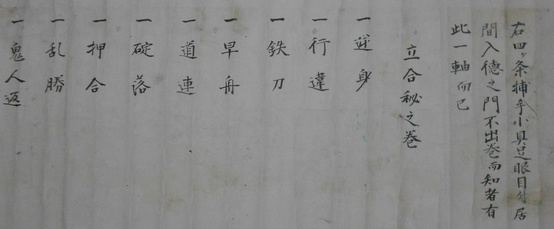 右四ヶ条捕手小具足眼目分居
間入徳之門不出巻而知者有
此一軸而已
立合秘之巻
一 逆身
一 行違
一 鉄刀
一 早舟
一 道連
一 碇落
一 押合
一 乱勝
一 鬼人返